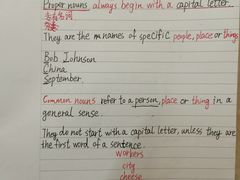 Proper nouns always begin with a capital letter.
专有名词
They are the names of specific people, place or things.
Bob Johnson
China
September
Common nouns refer to a person, place or thing in a
general sense.
They do not start with a capital letter, unless they are
the first word of a sentence.
workers
city
cheese